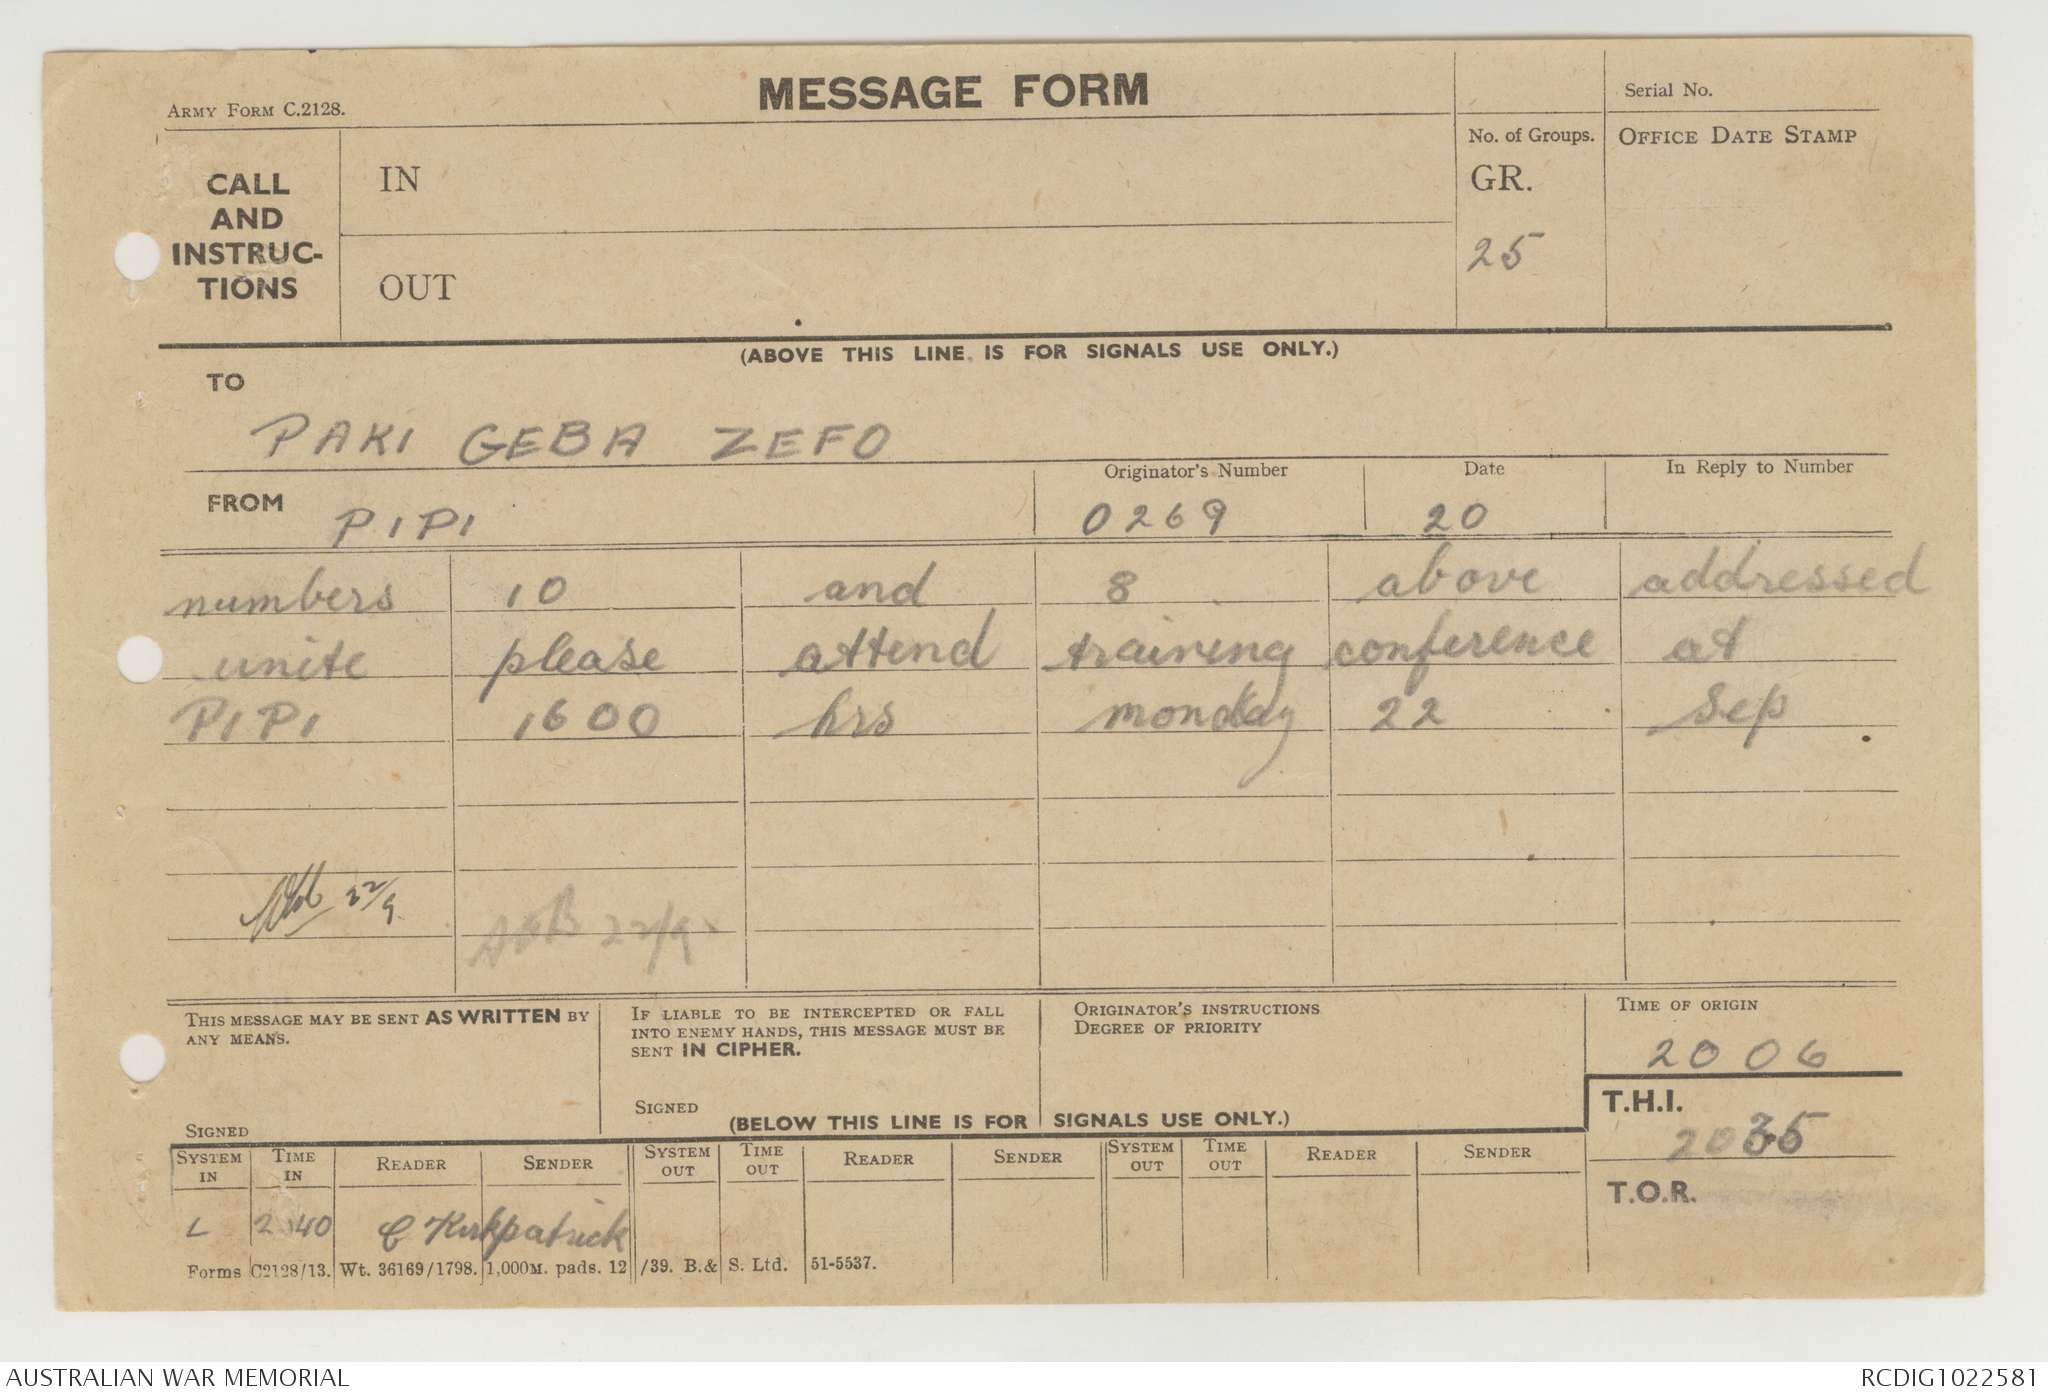 MESSAGE FORM
ARMY FORM C.2128.
Serial No.
CALL AND INSTRUC- TIONS
IN
OUT
No. of Groups.
GR.
25
OFFICE DATE STAMP
(ABOVE THIS LINE IS FOR SIGNALS USE ONLY.)
TO
PAKI GEBA ZEFO
FROM PIPI
Originator's Number 0269
Date 20
In Reply to Number
numbers 10 and 8 above addressed
units please attend training conference at
PIPI 1600 hrs monday 22 Sep
22/9
22/9
THIS MESSAGE MAY BE SENT AS WRITTEN BY
ANY MEANS.
SIGNED
IF LIABLE TO BE INTERCEPTED OR FALL
INTO ENEMY HANDS, THIS MESSAGE MUST BE
SENT IN CIPHER.
SIGNED
ORIGINATOR'S INSTRUCTIONS
DEGREE OF PRIORITY
TIME OF ORIGIN
2006
(BELOW THIS LINE IS FOR SIGNALS USE ONLY.)
T.H.I.
2035
T.O.R.
SYSTEM IN TIME IN READER SENDER SYSTEM OUT TIME OUT READER SENDER SYSTEM OUT TIME OUT READER SENDER
L C Kirkpatrick
Forms C2128/13. Wt. 36169/1798. 1,000M. pads. 12/39. B.& S. Ltd. 51-5537.
AUSTRALIAN WAR MEMORIAL
RCDIG1022581